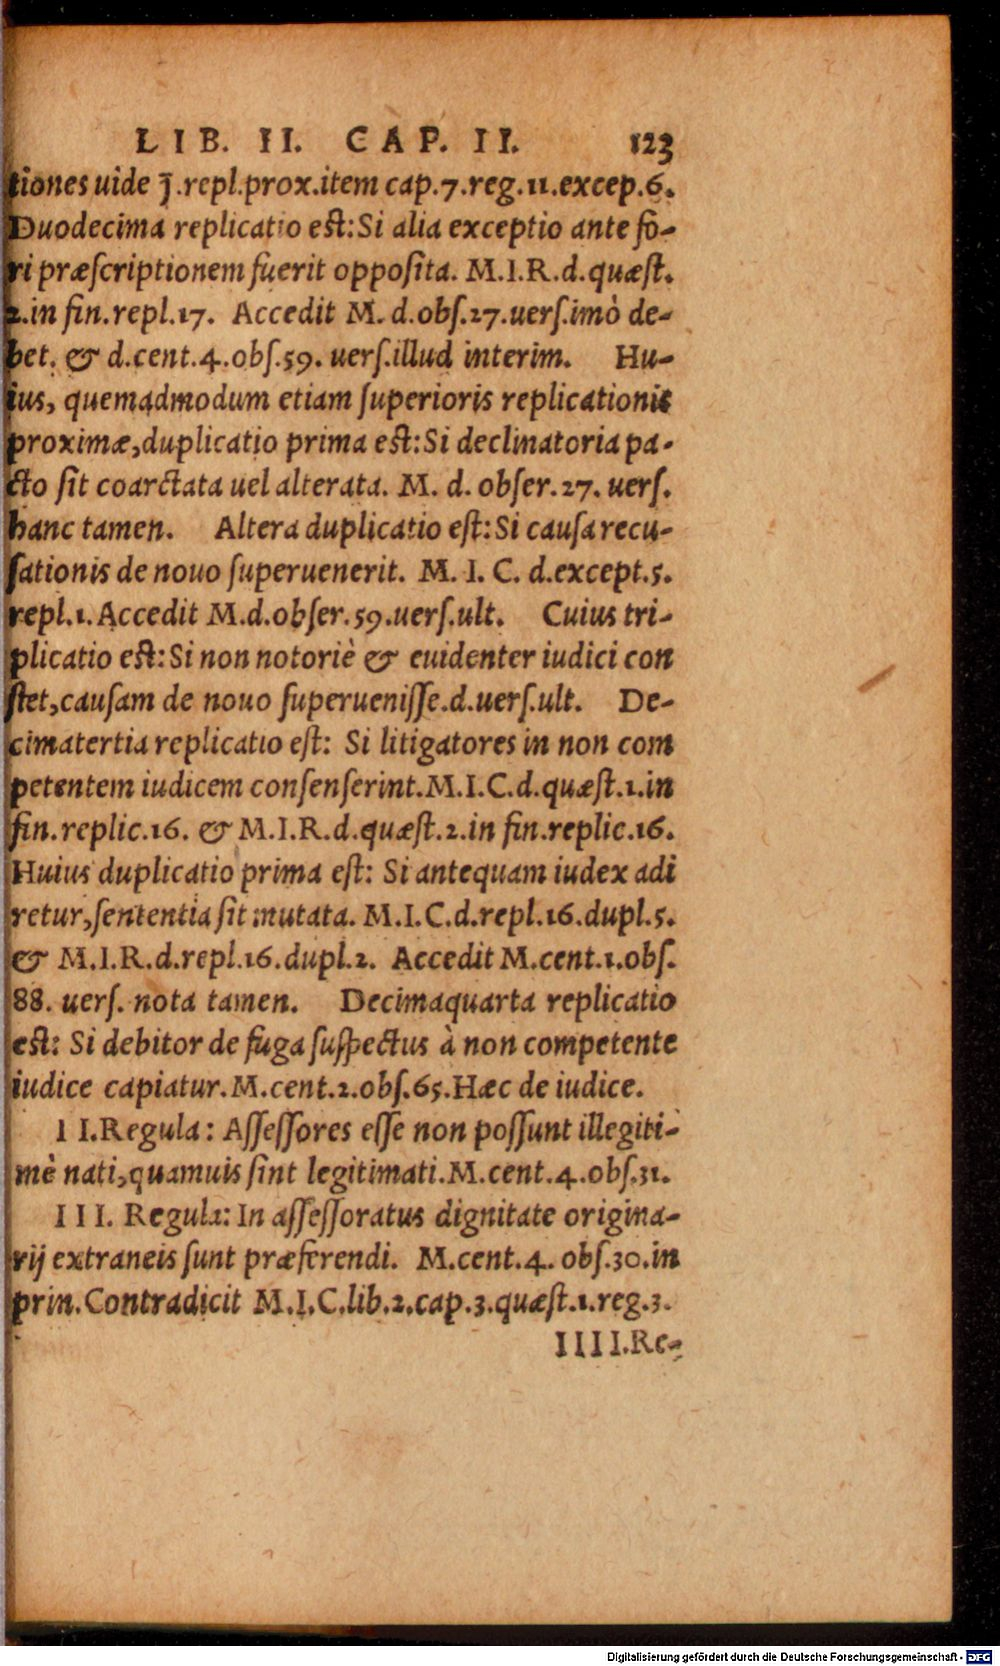 LIB. II. CAP. II. 123
tiones uide J̄.repl.prox.item cap.7.reg.11.excep.6.
Duodecima replicatio eſt:Si alia exceptio ante fo-
ri præſcriptionem fuerit oppoſita. M.I.R.d.quæſt.
2.in fin.repl.17. Accedit M. d.obſ.27.uerſ.imò de-
bet. & d.cent.4.obſ.59. uerſ.illud interim. Hu-
ius, quemadmodum etiam ſuperioris replicationis
proximæ,duplicatio prima eſt:Si declinatoria pa-
cto ſit coarctata uel alterata. M. d. obſer.27. uerſ.
hanc tamen. Altera duplicatio eſt:Si cauſa recu-
ſationis de nouo ſuperuenerit. M. I. C. d.except.5.
repl.1.Accedit M.d.obſer.59.uerſ.ult. Cuius tri-
plicatio eſt:Si non notoriè & euidenter iudici con
ſtet,cauſam de nouo ſuperueniſſe.d.uerſ.ult. De-
cimatertia replicatio eſt: Si litigatores in non com
petentem iudicem conſenſerint.M.I.C.d.quæſt.1.in
fin.replic.16. & M.I.R.d.quæſt.2.in fin.replic.16.
Huius duplicatio prima eſt: Si antequam iudex adi
retur,ſententia ſit mutata. M.I.C.d.repl.16.dupl.5.
& M.I.R.d.repl.16.dupl.2. Accedit M.cent.1.obſ.
88. uerſ. nota tamen. Decimaquarta replicatio
eſt: Si debitor de fuga ſuſpectus à non competente
iudice capiatur.M.cent.2.obſ.65.Hæc de iudice.
II.Regula: Aſſeſſores eſſe non poſſunt illegiti-
mè nati,quamuis ſint legitimati.M.cent.4.obſ.31.
III. Regula:In aſſeſſoratus dignitate origina-
rij extraneis ſunt præferendi. M.cent.4. obſ.30.in
prin.Contradicit M.I.C.lib.2.cap.3.quæſt.1.reg.3.
IIII.Re-
Digitalisierung gefördert durch die Deutsche Forschungsgemeinschaft - DFG